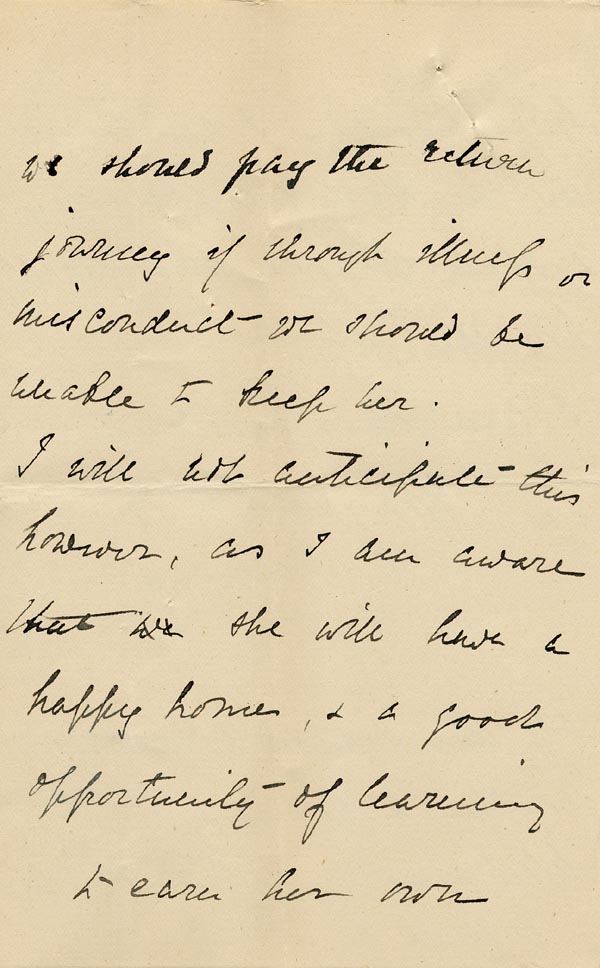 we should pay the return
journey if through illness or
misconduct we should be
unable to keep her.
I will not anticipate this
however, as I am aware
that we she will have a
happy home, & a good
opportunity of learning
to earn her own